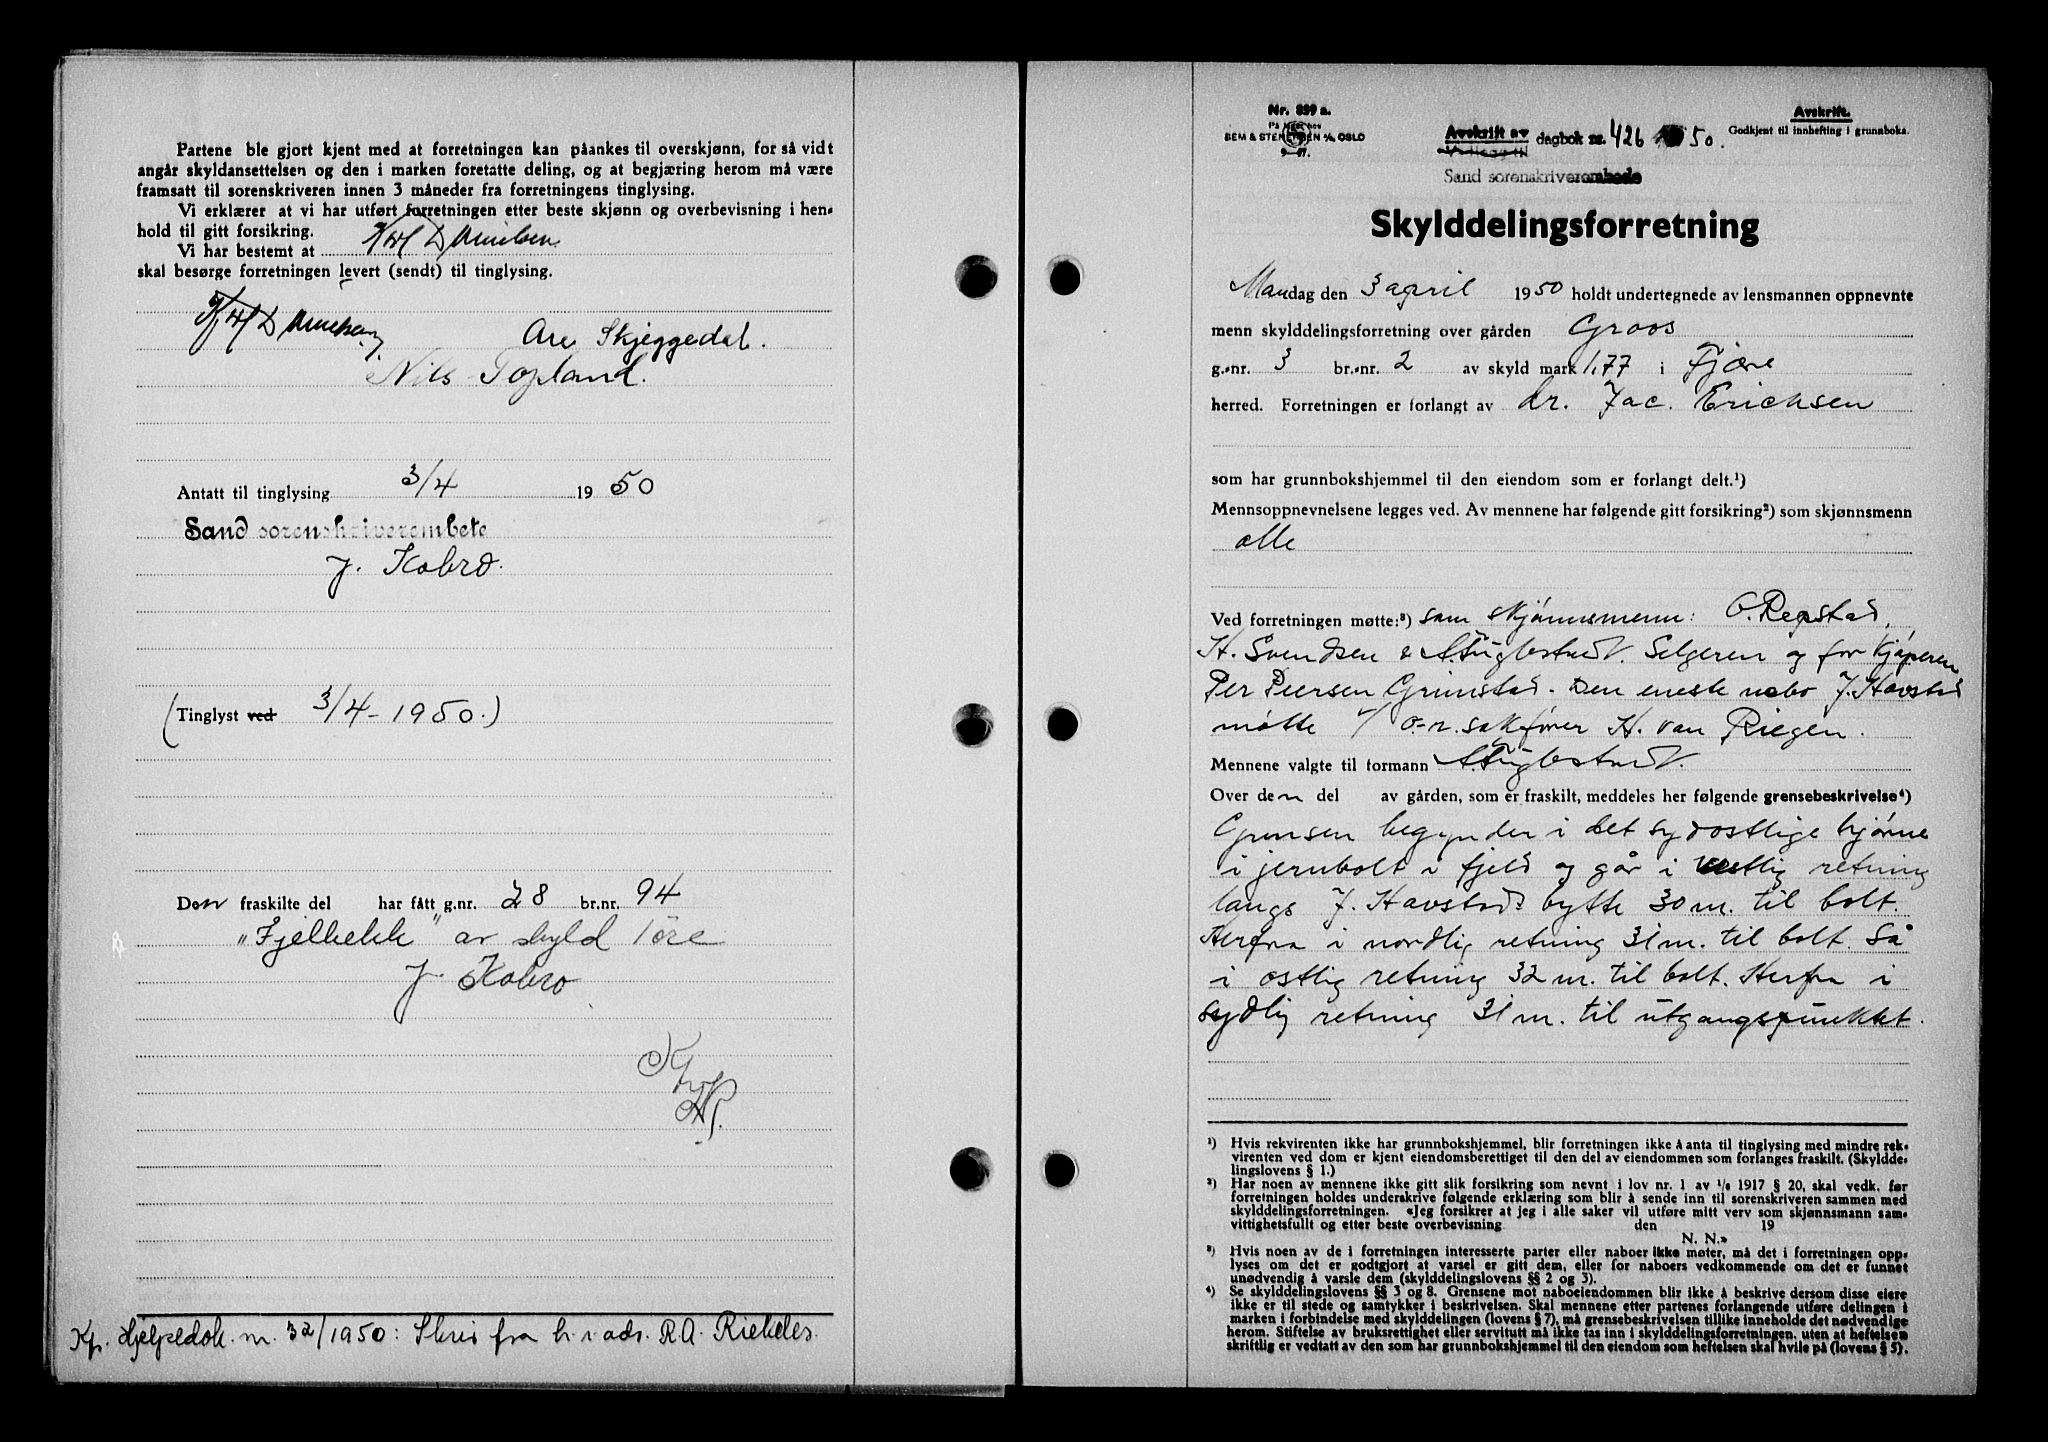 Partene ble gjort kjent med at forretningen kan påankes til overskjønn, for så vidt
angår skyldansettelsen og den i marken foretatte deling, og at begjæring herom må være
framsatt til sorenskriveren innen 3 måneder fra forretningens tinglysing.
Vi erklærer at vi har utført forretningen etter beste skjønn og overbevisning i hen-
hold til gitt forsikring.
Vi har bestemt at
skal besørge forretningen levert (sendt) til tinglysing.
Are Skjeggedal.
Nils Topland.
Antatt til tinglysing 3/4 1950
Sand sorenskriverembete
J. Kobro.
(Tinglyst ved 3/4-1950.)
Den fraskilte del har fått g.nr. 28 br.nr. 94
"Fjellhekk" av skyld 1 øre
J. Kobro
Kp. Hjelpedok. nr. 32/1950: Skriv fra h.r.adv. R.A. Riekeles.
Nr. 899 a.
BEM & STENERSEN A/S OSLO
Avskrift av dagbok nr. 426 1950.
Sand sorenskriverembede
Avskrift.
Godkjent til innhefting i grunnboka.
Skylddelingsforretning
Mandag den 3 april 1950 holdt undertegnede av lensmannen oppnevnte
menn skylddelingsforretning over gården Groos
g.-nr. 3 br.-nr. 2 av skyld mark 1,77 i Fjære
herred. Forretningen er forlangt av dr. Jac. Erichsen
som har grunnbokshjemmel til den eiendom som er forlangt delt.¹)
Mennsoppnevnelsene legges ved. Av mennene har følgende gitt forsikring²) som skjønnsmenn
alle
Ved forretningen møtte:³) som skjønnsmenn: O. Repstad,
H. Svendsen & A. Fuglestvedt. Selgeren og for kjøperen
Per Peersen Grimstad. Den eneste nabo J. Havstad
møtte v/ o.r.sakfører H. van Riegen.
Mennene valgte til formann A. Fuglestvedt.
Over den del av gården, som er fraskilt, meddeles her følgende grensebeskrivelse⁴)
Grensen begynder i det sydostlige hjørne
i jernbolt i fjeld og går i vestlig retning
langs J. Havstads bytte 30 m. til bolt.
Herfra i nordlig retning 31 m. til bolt. Så
i østlig retning 32 m. til bolt. Herfra i
sydlig retning 31 m. til utgangspunktet.
¹) Hvis rekvirenten ikke har grunnbokshjemmel, blir forretningen ikke å anta til tinglysing med mindre rek-
virenten ved dom er kjent eiendomsberettiget til den del av eiendommen som forlanges fraskilt. (Skyldde-
lingslovens § 1.)
²) Har noen av mennene ikke gitt slik forsikring som nevnt i lov nr. 1 av 1/6 1917 § 20, skal vedk. før
forretningen holdes underskrive følgende erklæring som blir å sende inn til sorenskriveren sammen med
skylddelingsforretningen. «Jeg forsikrer at jeg i alle saker vil utføre mitt verv som skjønnsmann sam-
vittighetsfullt og etter beste overbevisning den 19
N. N.»
³) Hvis noen av de i forretningen interesserte parter eller naboer ikke møter, må det i forretningen opp-
lyses om det er godtgjort at varsel er gitt dem, eller for naboers vedkommende om det er funnet
unødvendig å varsle dem (skylddelingslovens §§ 2 og 3).
⁴) Se skylddelingslovens §§ 3 og 8. Grensene mot naboeiendommen blir ikke å beskrive dersom disse eiere
ikke er til stede og samtykker i beskrivelsen. Skal mennene etter partenes forlangende utføre delingen i
marken i forbindelse med skylddelingen (lovens § 7), må grensebeskrivelsen tillike inneholde det nødvendige
herom. Stiftelse av bruksrettighet eller servitutt må ikke tas inn i skylddelingsforretningen, uten at heftelsen
skriftlig er vedtatt av den som har grunnbokshjemmel til den eiendom som heftelsen skal hvile på (lovens § 5).